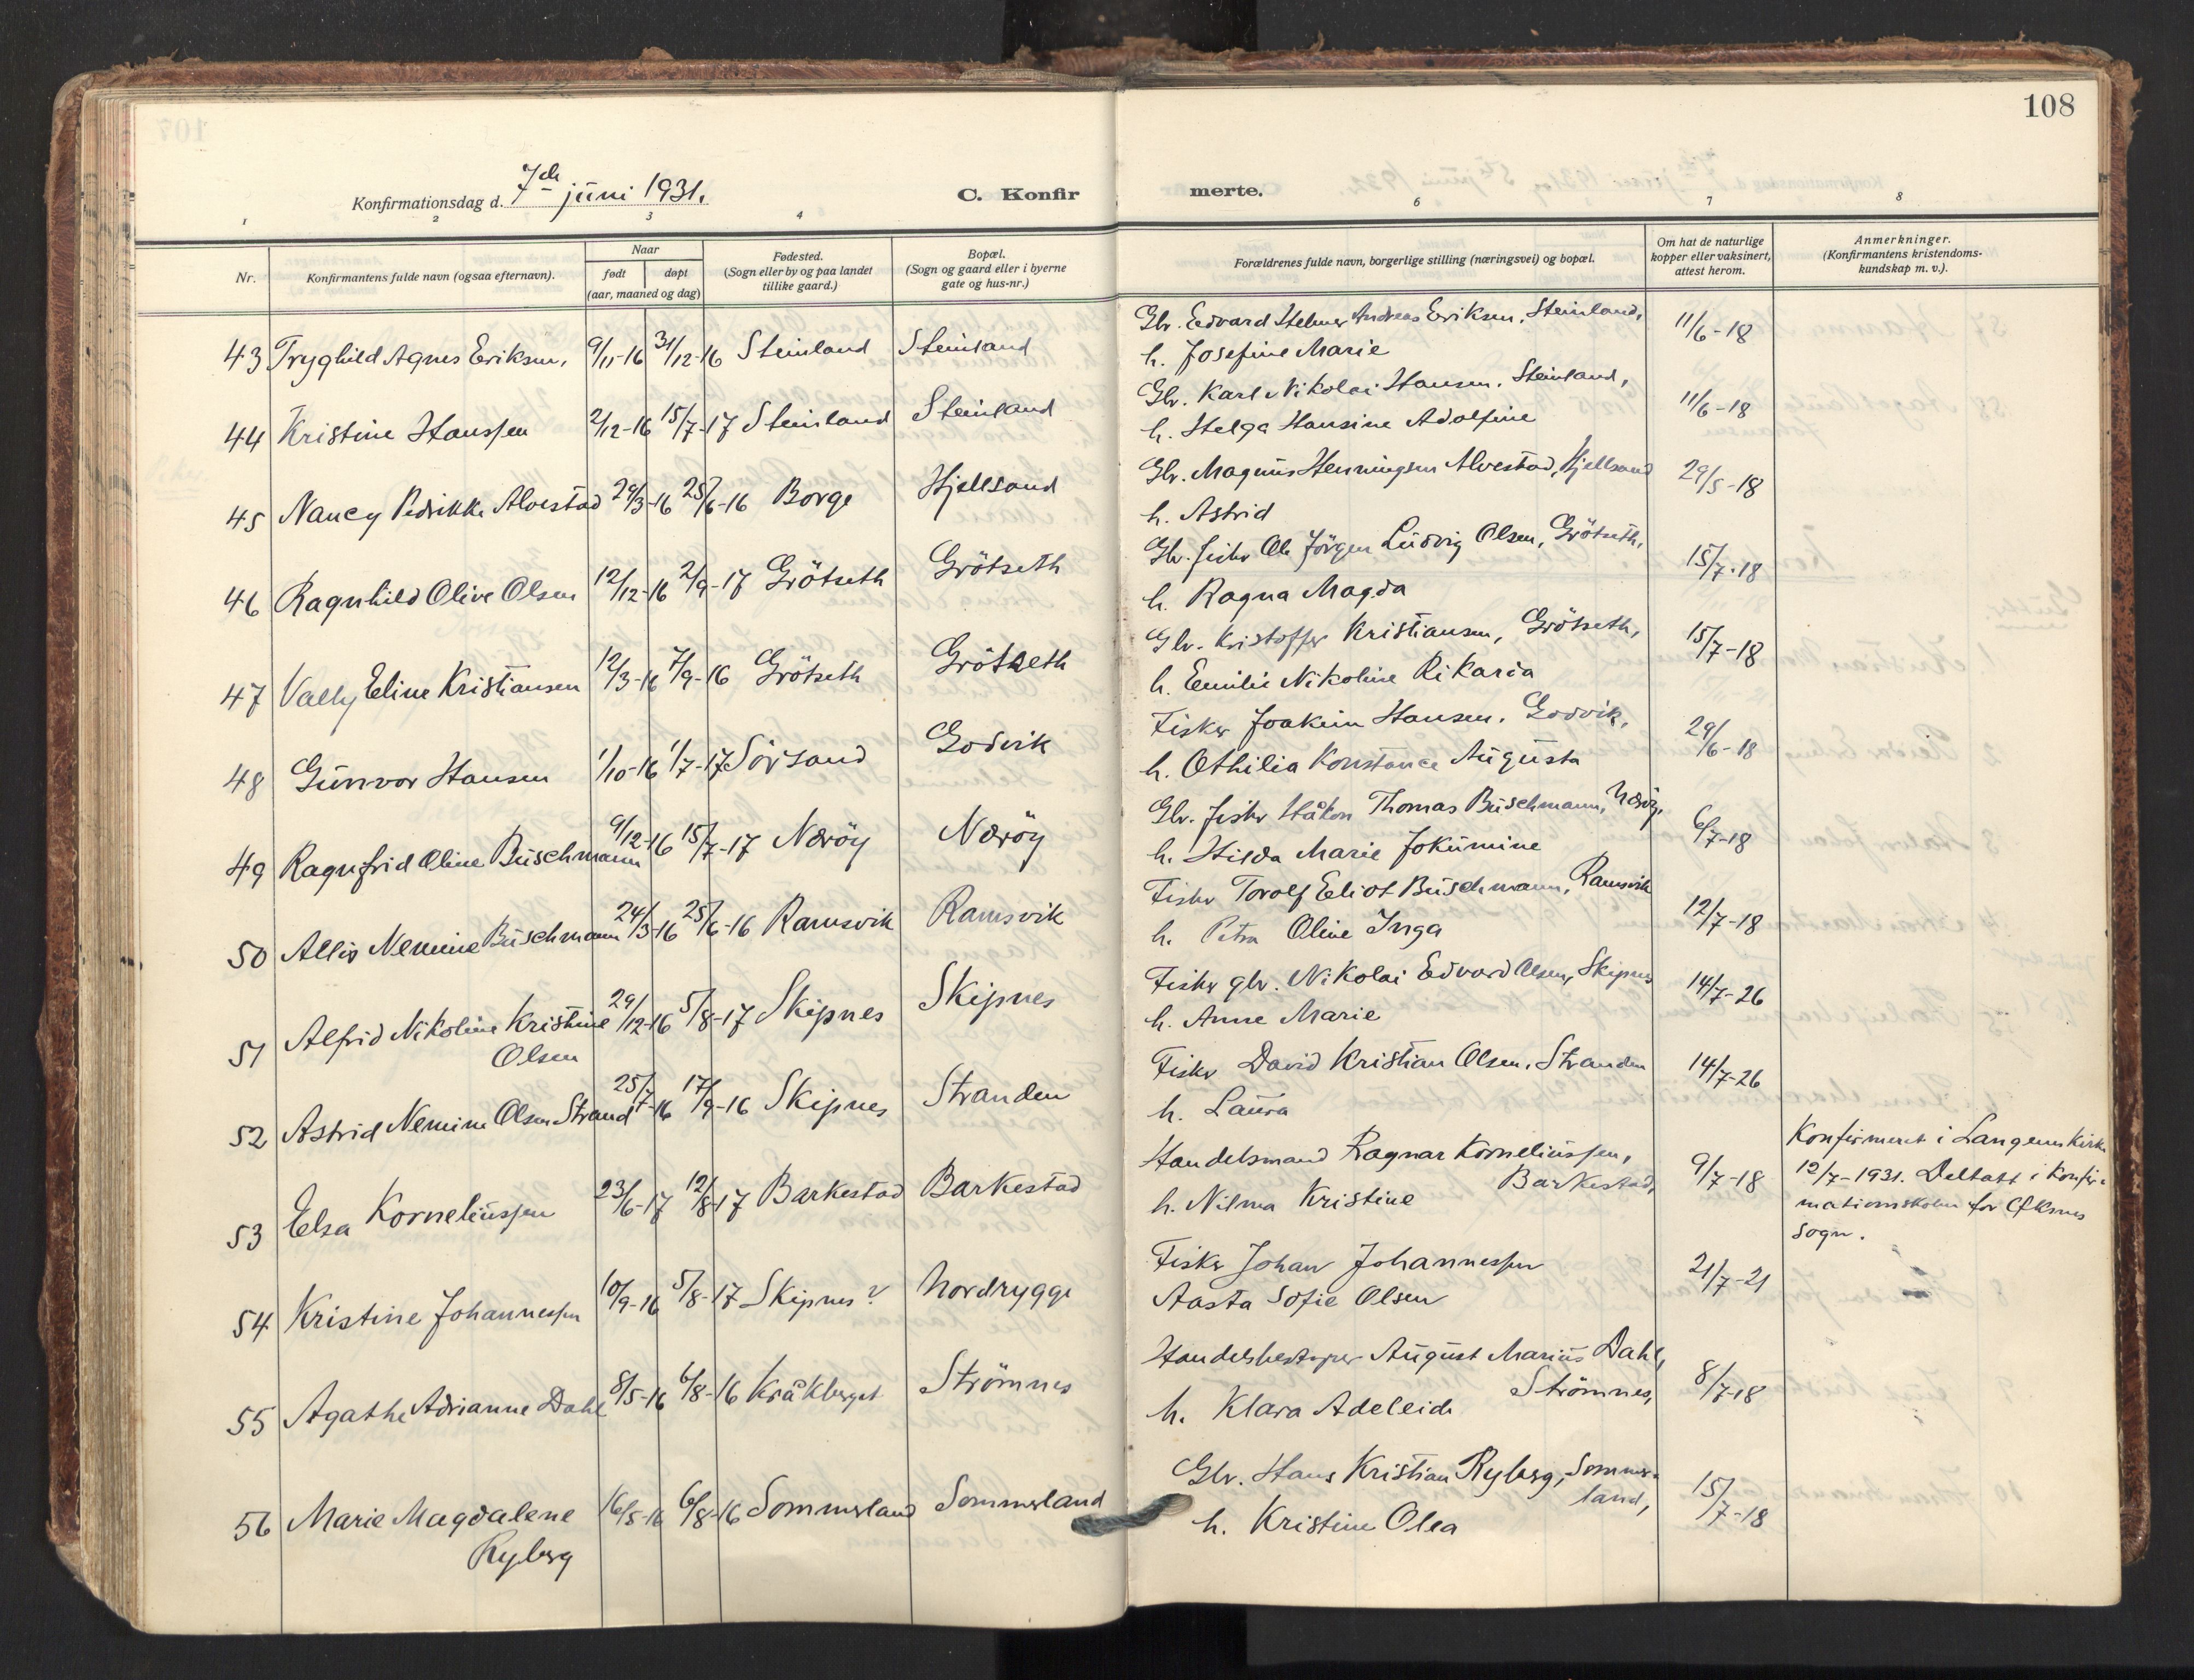 108
Konfirmationsdag d. 7de juni 1931.
C. Konfirmerte.
1 2 3 4 6 7 8
Nr.
Konfirmantens fulde navn (ogsaa efternavn).
Naar
født
døpt
(aar, maaned og dag)
Fødested.
(Sogn eller by og paa landet
tillike gaard.)
Bopæl.
(Sogn og gaard eller i byerne
gate og hus-nr.)
Forældrenes fulde navn, borgerlige stilling (næringsvei) og bopæl.
Om hat de naturlige
kopper eller vaksinert,
attest herom.
Anmerkninger.
(Konfirmantens kristendoms-
kundskap m. v.).
43 Tryghild Agnes Eriksen, 9/11-16 31/12-16 Steinland Steinland
Gbr. Edvard Helmer Andreas Eriksen, Steinland, 11/6-18
h. Josefine Marie
44 Kristine Hanssen 2/12-16 15/7-17 Steinland Steinland
Gbr. Karl Nikolai Hansen. Steinland, 11/6-18
h. Helga Hansine Adolfine
45 Nancy Pedrikke Alvestad 29/3-16 25/6-16 Borge Hjellsand
Gbr. Magnus Henningsen Alvestad, Hjellsand 29/5-18
h. Astrid
46 Ragnhild Olive Olsen 12/12-16 2/9-17 Grötseth Grötseth
Gbr. fisker Ole Jörgen Ludvig Olsen, Grötseth, 15/7-18
h. Ragna Magda
47 Vally Eline Kristiansen 12/3-16 7/9-16 Grötseth Grötseth
Gbr. Kristoffer Kristiansen, Grötseth, 15/7-18
h. Emilie Nikoline Rikarda
48 Gunvor Hansen 1/10-16 1/7-17 Sörsand Godvik
Fisker Joakim Hansen. Godvik, 29/6-18
h. Othilia Konstance Augusta
49 Ragnfrid Oline Buschmann 9/12-16 15/7-17 Næröy Næröy
Gbr. fisker Håkon Thomas Buschmann, Næröy, 6/7-18
h. Hilda Marie Jokumine
50 Allis Nemine Buschmann 24/3-16 25/6-16 Ramsvik Ramsvik
Fisker Torolf Eliot Buschmann, Ramsvik 12/7-18
h. Petra Oline Inga
51 Alfrid Nikoline Kristine 29/12-16 5/8-17 Skipnes Skipnes
Olsen
Fisker gbr. Nikolai Edvard Olsen, Skipnes 14/7-26
h. Anne Marie
52 Astrid Nemine Olsen Strand 25/7-16 17/9-16 Skipnes Stranden
Fisker David Kristian Olsen. Stranden 14/7-26
h. Laura
53 Elsa Korneliussen 23/6-17 12/8-17 Barkestad Barkestad
Handelsmand Ragnar Korneliussen,
Barkestad, 9/7-18
h. Nilma Kristine
Konfirmert i Langenes Kirke
12/7-1931. Deltatt i Konfir-
mationsskolen for Øksnes
sogn.
54 Kristine Johannessen 10/9-16 5/8-17 Skipnes? Nordrygge
Fisker Johan Johannessen 21/7-21
Aasta Sofie Olsen
55 Agathe Adrianne Dahl 8/5-16 6/8-16 Kråkberget Strömnes
Handelsbestyrer August Marius Dahl,
Strömnes, 8/7-18
h. Klara Adeleide
56 Marie Magdalene 16/5-16 6/8-16 Sommerland Sommerland
Ryberg
Gbr. Hans Kristian Ryberg, Sommer-
land, 15/7-18
h. Kristine Olea